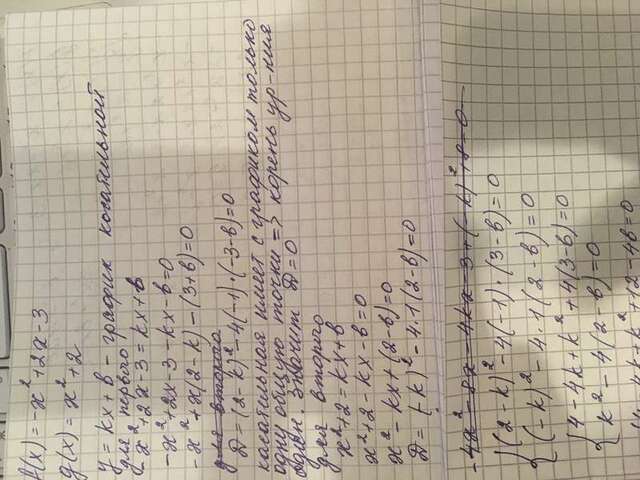 f(x) = -x²+2x-3
g(x) = x²+2
y = kx + b - график касательной
для первого
-x²+2x-3 = kx+b
-x²+2x-3-kx-b=0
-x²+x(2-k)-(3+b)=0
для второго
D = (2-k)²-4(-1)·(-3-b)=0
касательная имеет с графиком только
одну общую точки => корень ур-ния
один. значит D=0
для второго
x²+2 = kx+b
x²+2-kx-b=0
x²-kx+(2-b)=0
D = (-k)²-4·1(2-b)=0
{(2-k)²-4(-1)·(3-b)=0
(-k)²-4·1(2-b)=0
{4-4k+k²+4(3-b)=0
k²-4(2-b)=0
4k+k²+12-4b=0